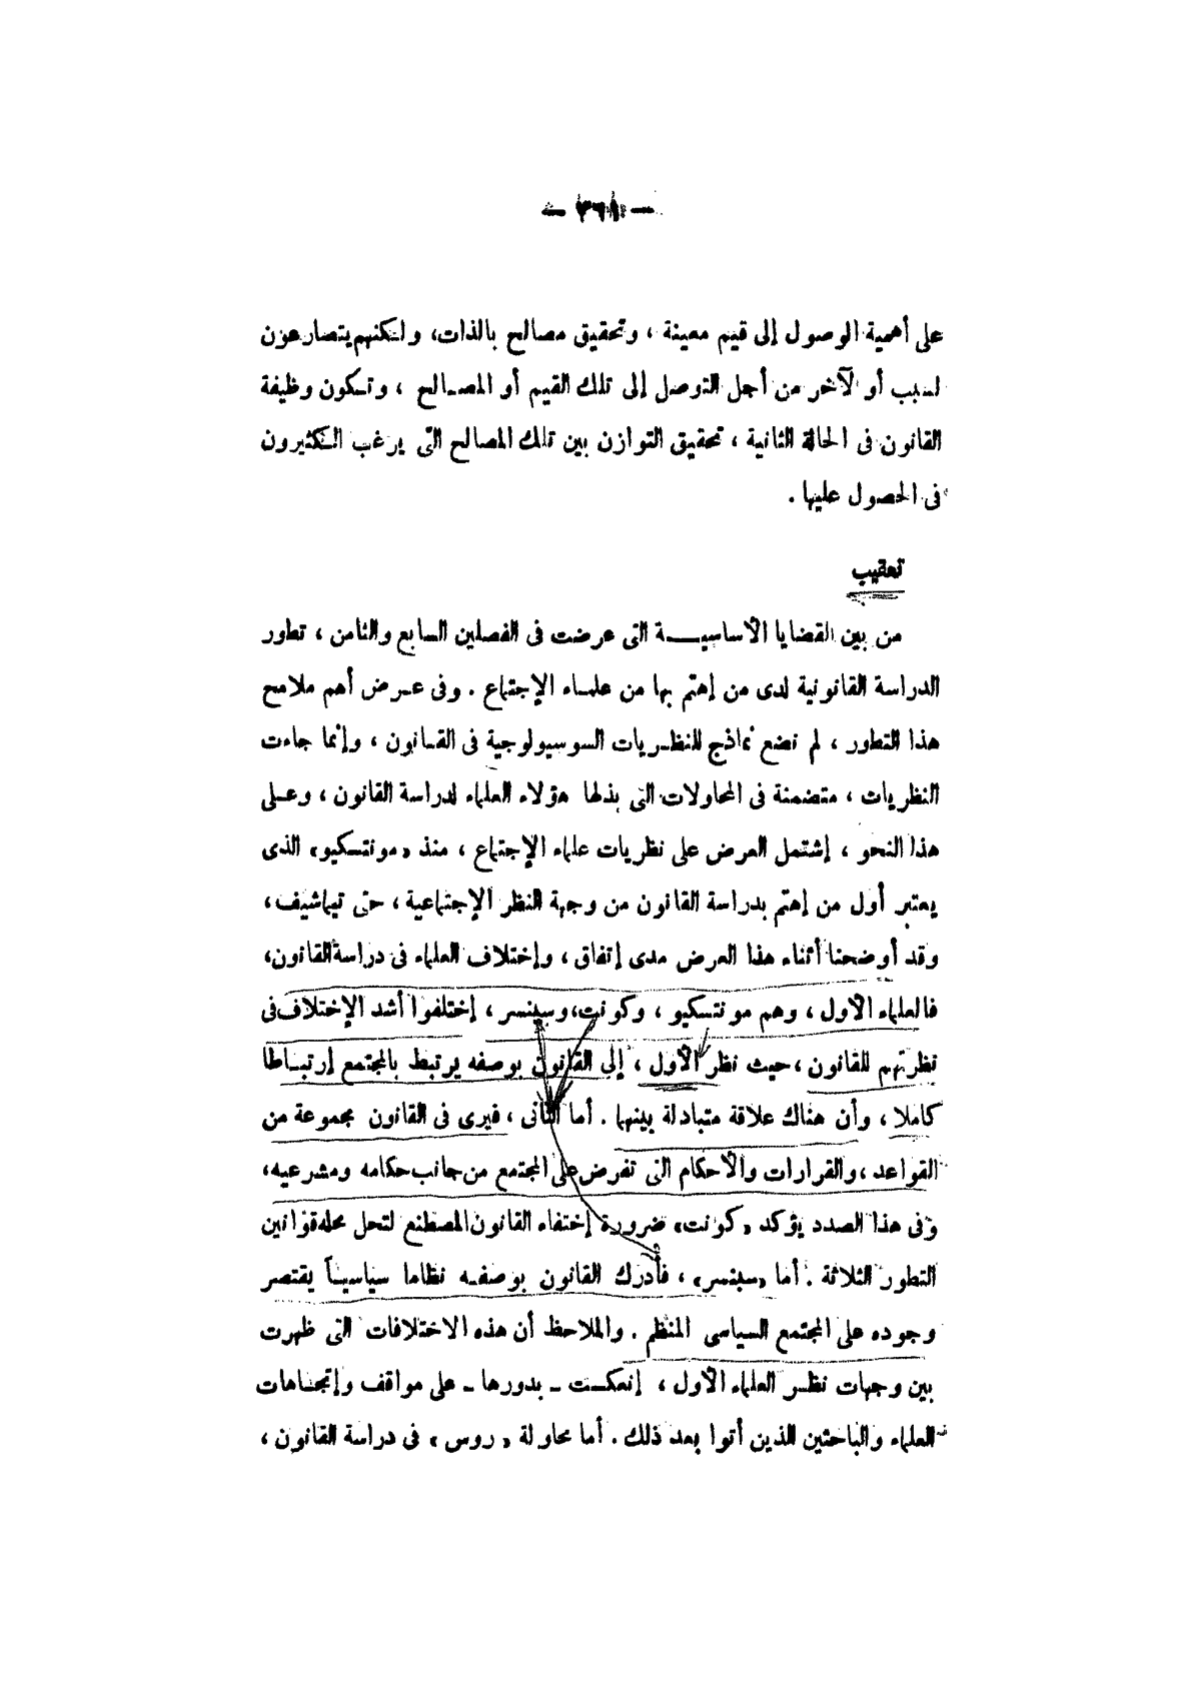 — ٣٦٨ —
على أهمية الوصول إلى قيم معينة ، وتحقيق مصالح بالذات، ولكنهم يتصارعون
لسبب أو لآخر من أجل التوصل إلى تلك القيم أو المصالح ، وتكون وظيفة
القانون فى الحالة الثانية ، تحقيق التوازن بين تلك المصالح التى يرغب الكثيرون
فى الحصول عليها .
تعقيب
من بين القضايا الأساسيـــة التى عرضت فى الفصلين السابع والثامن ، تطور
الدراسة القانونية لدى من إهتم بها من علماء الإجتماع . وفى عرض أهم ملامح
هذا التطور ، لم نضع نماذج للنظريات السوسيولوجية فى القانون ، وإنما جاءت
النظريات ، متضمنة فى المحاولات التى بذلها هؤلاء العلماء لدراسة القانون ، وعلى
هذا النحو ، إشتمل العرض على نظريات علماء الإجتماع ، منذ «مونتسكيو» الذى
يعتبر أول من إهتم بدراسة القانون من وجهة النظر الإجتماعية ، حتى تيماشيف،
وقد أوضحنا أثناء هذا العرض مدى إتفاق ، وإختلاف العلماء فى دراسة القانون،
فالعلماء الأول ، وهم مونتسكيو ، وكونت، وسبنسر ، إختلفوا أشد الإختلاف فى
نظرتهم للقانون ، حيث نظر الأول ، إلى القانون بوصفه يرتبط بالمجتمع إرتباطا
كاملا ، وأن هناك علاقة متبادلة بينهما . أما الثانى ، فيرى فى القانون مجموعة من
القواعد ، والقرارات والأحكام التى تفرض على المجتمع من جانب حكامه ومشرعيه،
وفى هذا الصدد يؤكد «كونت» ضرورة إختفاء القانون المصطنع لتحل محله قوانين
التطور الثلاثة . أما «سبنسر» ، فأدرك القانون بوصفه نظاما سياسياً يقتصر
وجوده على المجتمع السياسى المنظم . والملاحظ أن هذه الاختلافات التى ظهرت
بين وجهات نظر العلماء الأول ، إنعكست ـ بدورها ـ على مواقف وإتجاهات
العلماء والباحثين الذين أتوا بعد ذلك . أما محاولة «روس» فى دراسة القانون ،